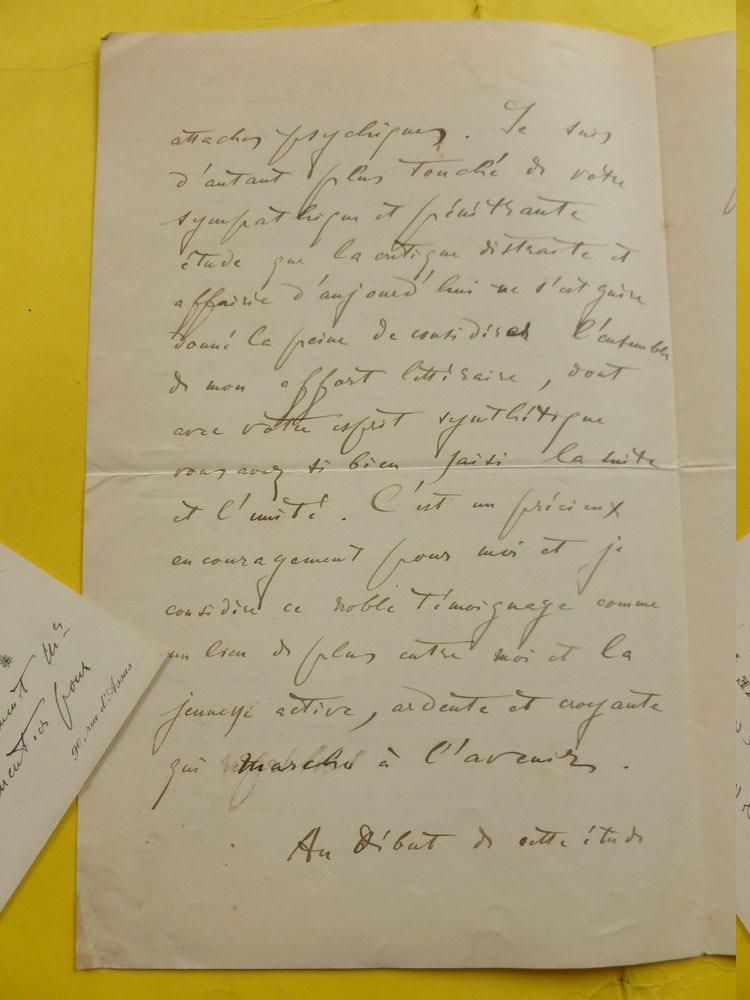 attaches psychiques. Je suis
d'autant plus touché de votre
sympathique et pénétrante
étude que la critique distraite et
affairée d'aujourd'hui ne s'est guère
donné la peine de considérer l'ensemble
de mon effort littéraire, dont
avec votre esprit synthétique
vous avez si bien saisi la suite
et l'unité. C'est un précieux
encouragement pour moi et je
considère ce noble témoignage comme
un lien de plus entre moi et la
jeunesse active, ardente et croyante
qui marche à l'avenir.
Au début de cette étude
pour
90, rue d'Assas